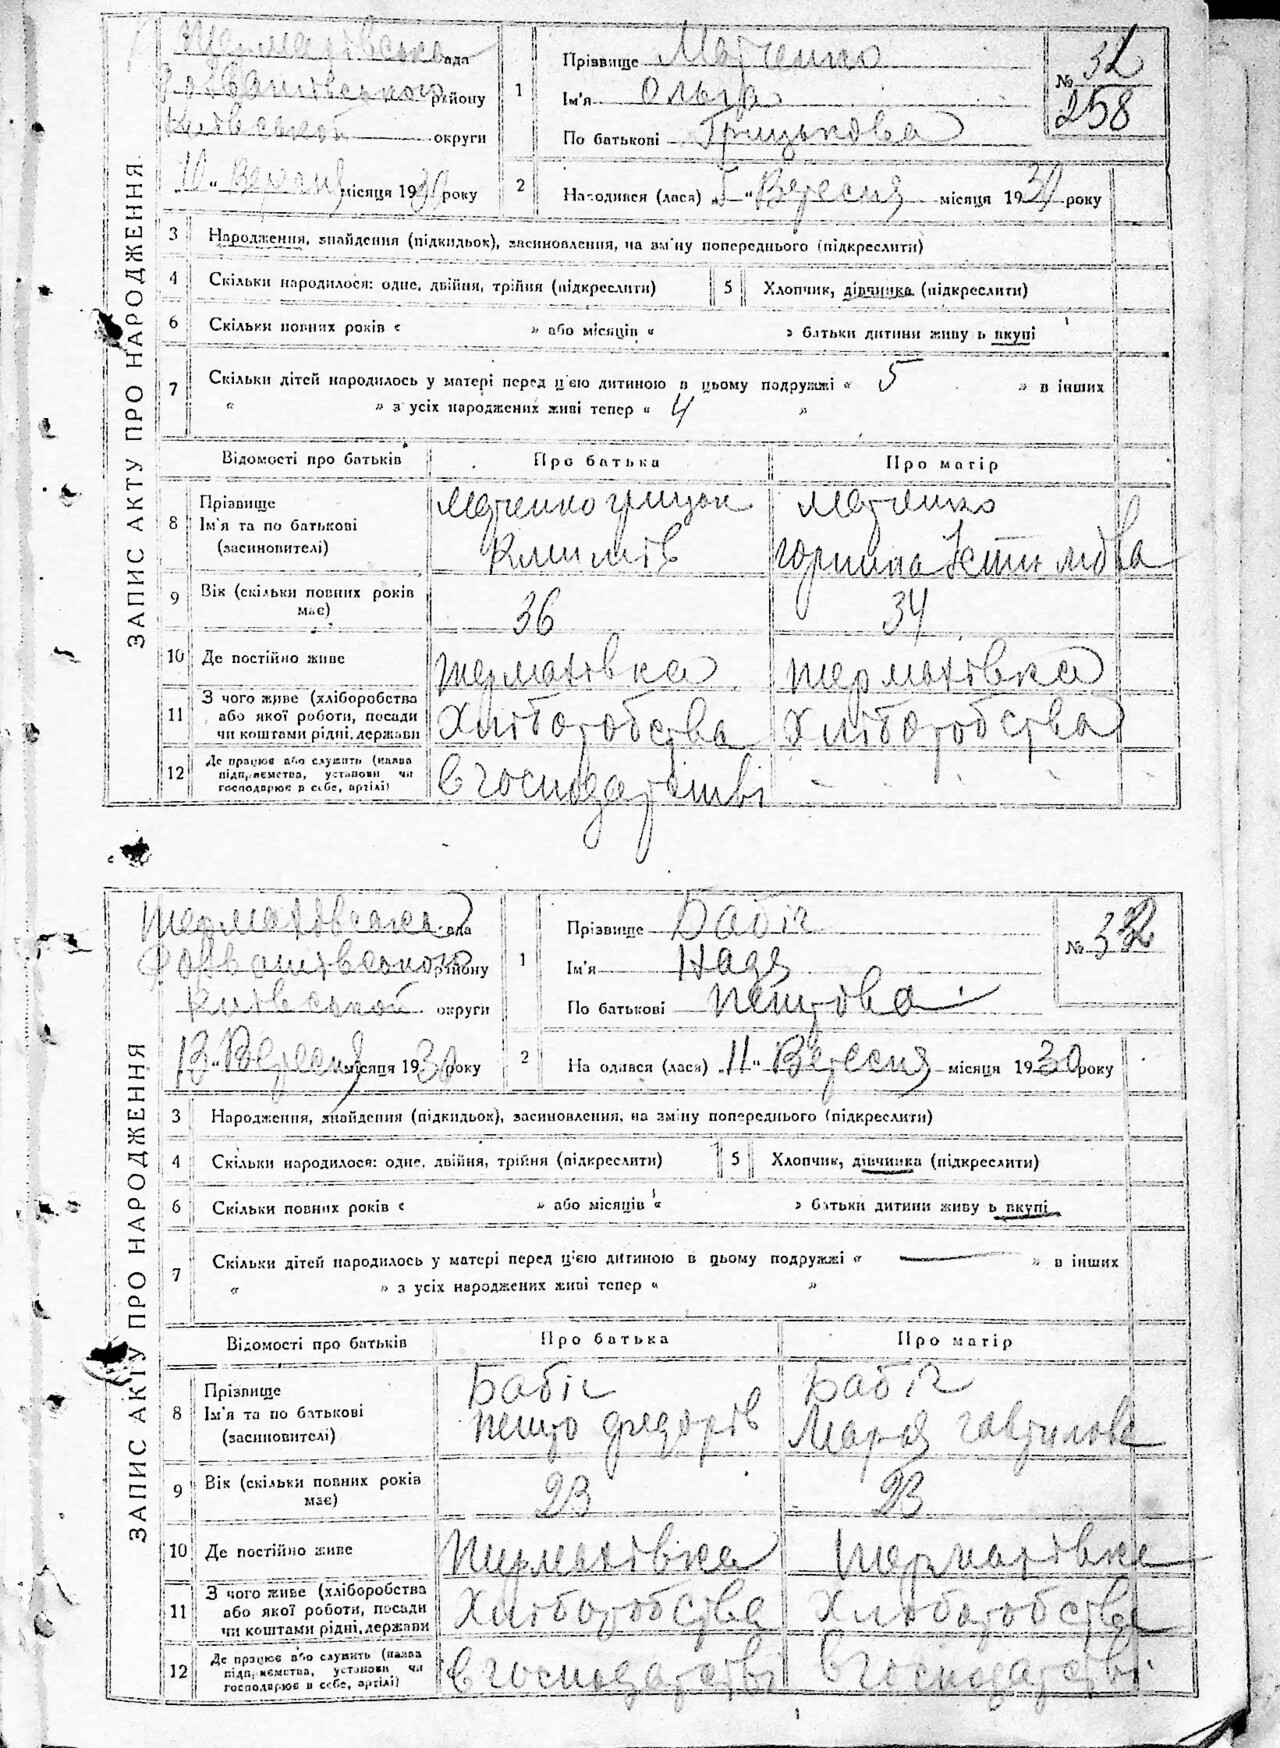 ЗАПИС АКТУ ПРО НАРОДЖЕННЯ
рада
району
Київської округи
10 " Вересня місяця 1930 року
1
Прізвище Матченко
Ім'я Ольга
По батькові Грицькова
№ 31
258
2
Народився (лася) „5" Вересня місяця 1930 року
3 Народження, знайдення (підкидьок), засиновлення, на зміну попереднього (підкреслити)
4 Скільки народилося: одне, двійня, трійня (підкреслити) 5 Хлопчик, дівчинка (підкреслити)
6 Скільки повних років « » або місяців « » батьки дитини живуть вкупі
7 Скільки дітей народилось у матері перед цією дитиною в цьому подружжі « 5 » в інших
« » з усіх народжених живі тепер « 4 »
Відомості про батьків Про батька Про матір
8 Прізвище
Ім'я та по батькові
(засиновителі)
Матченко Грицок
Климів
Матченко
горпина Устимова
9 Вік (скільки повних років має) 36 34
10 Де постійно живе Термахівка Термахівка
11 З чого живе (хліборобства
або якої роботи, посади
чи коштами рідні, держави
Хліборобства Хліборобства
12 Де працює або служить (назва
підприємства, установи чи
господарює в себе, артілі)
в господарстві
ЗАПИС АКТУ ПРО НАРОДЖЕННЯ
Термахівська рада
району
Київської округи
13 " Вересня місяця 1930 року
1
Прізвище Бабіч
Ім'я Надя
По батькові Петрова
№ 32
2
Народився (лася) „11" Вересня місяця 1930 року
3 Народження, знайдення (підкидьок), засиновлення, на зміну попереднього (підкреслити)
4 Скільки народилося: одне, двійня, трійня (підкреслити) 5 Хлопчик, дівчинка (підкреслити)
6 Скільки повних років « » або місяців « » батьки дитини живуть вкупі
7 Скільки дітей народилось у матері перед цією дитиною в цьому подружжі « — » в інших
« » з усіх народжених живі тепер « »
Відомості про батьків Про батька Про матір
8 Прізвище
Ім'я та по батькові
(засиновителі)
Бабіч
Петро федорів
Бабіч
Марія гаврилова
9 Вік (скільки повних років має) 23 23
10 Де постійно живе Термахівка Термахівка
11 З чого живе (хліборобства
або якої роботи, посади
чи коштами рідні, держави
Хліборобства Хліборобства
12 Де працює або служить (назва
підприємства, установи чи
господарює в себе, артілі)
в господарстві в господарстві